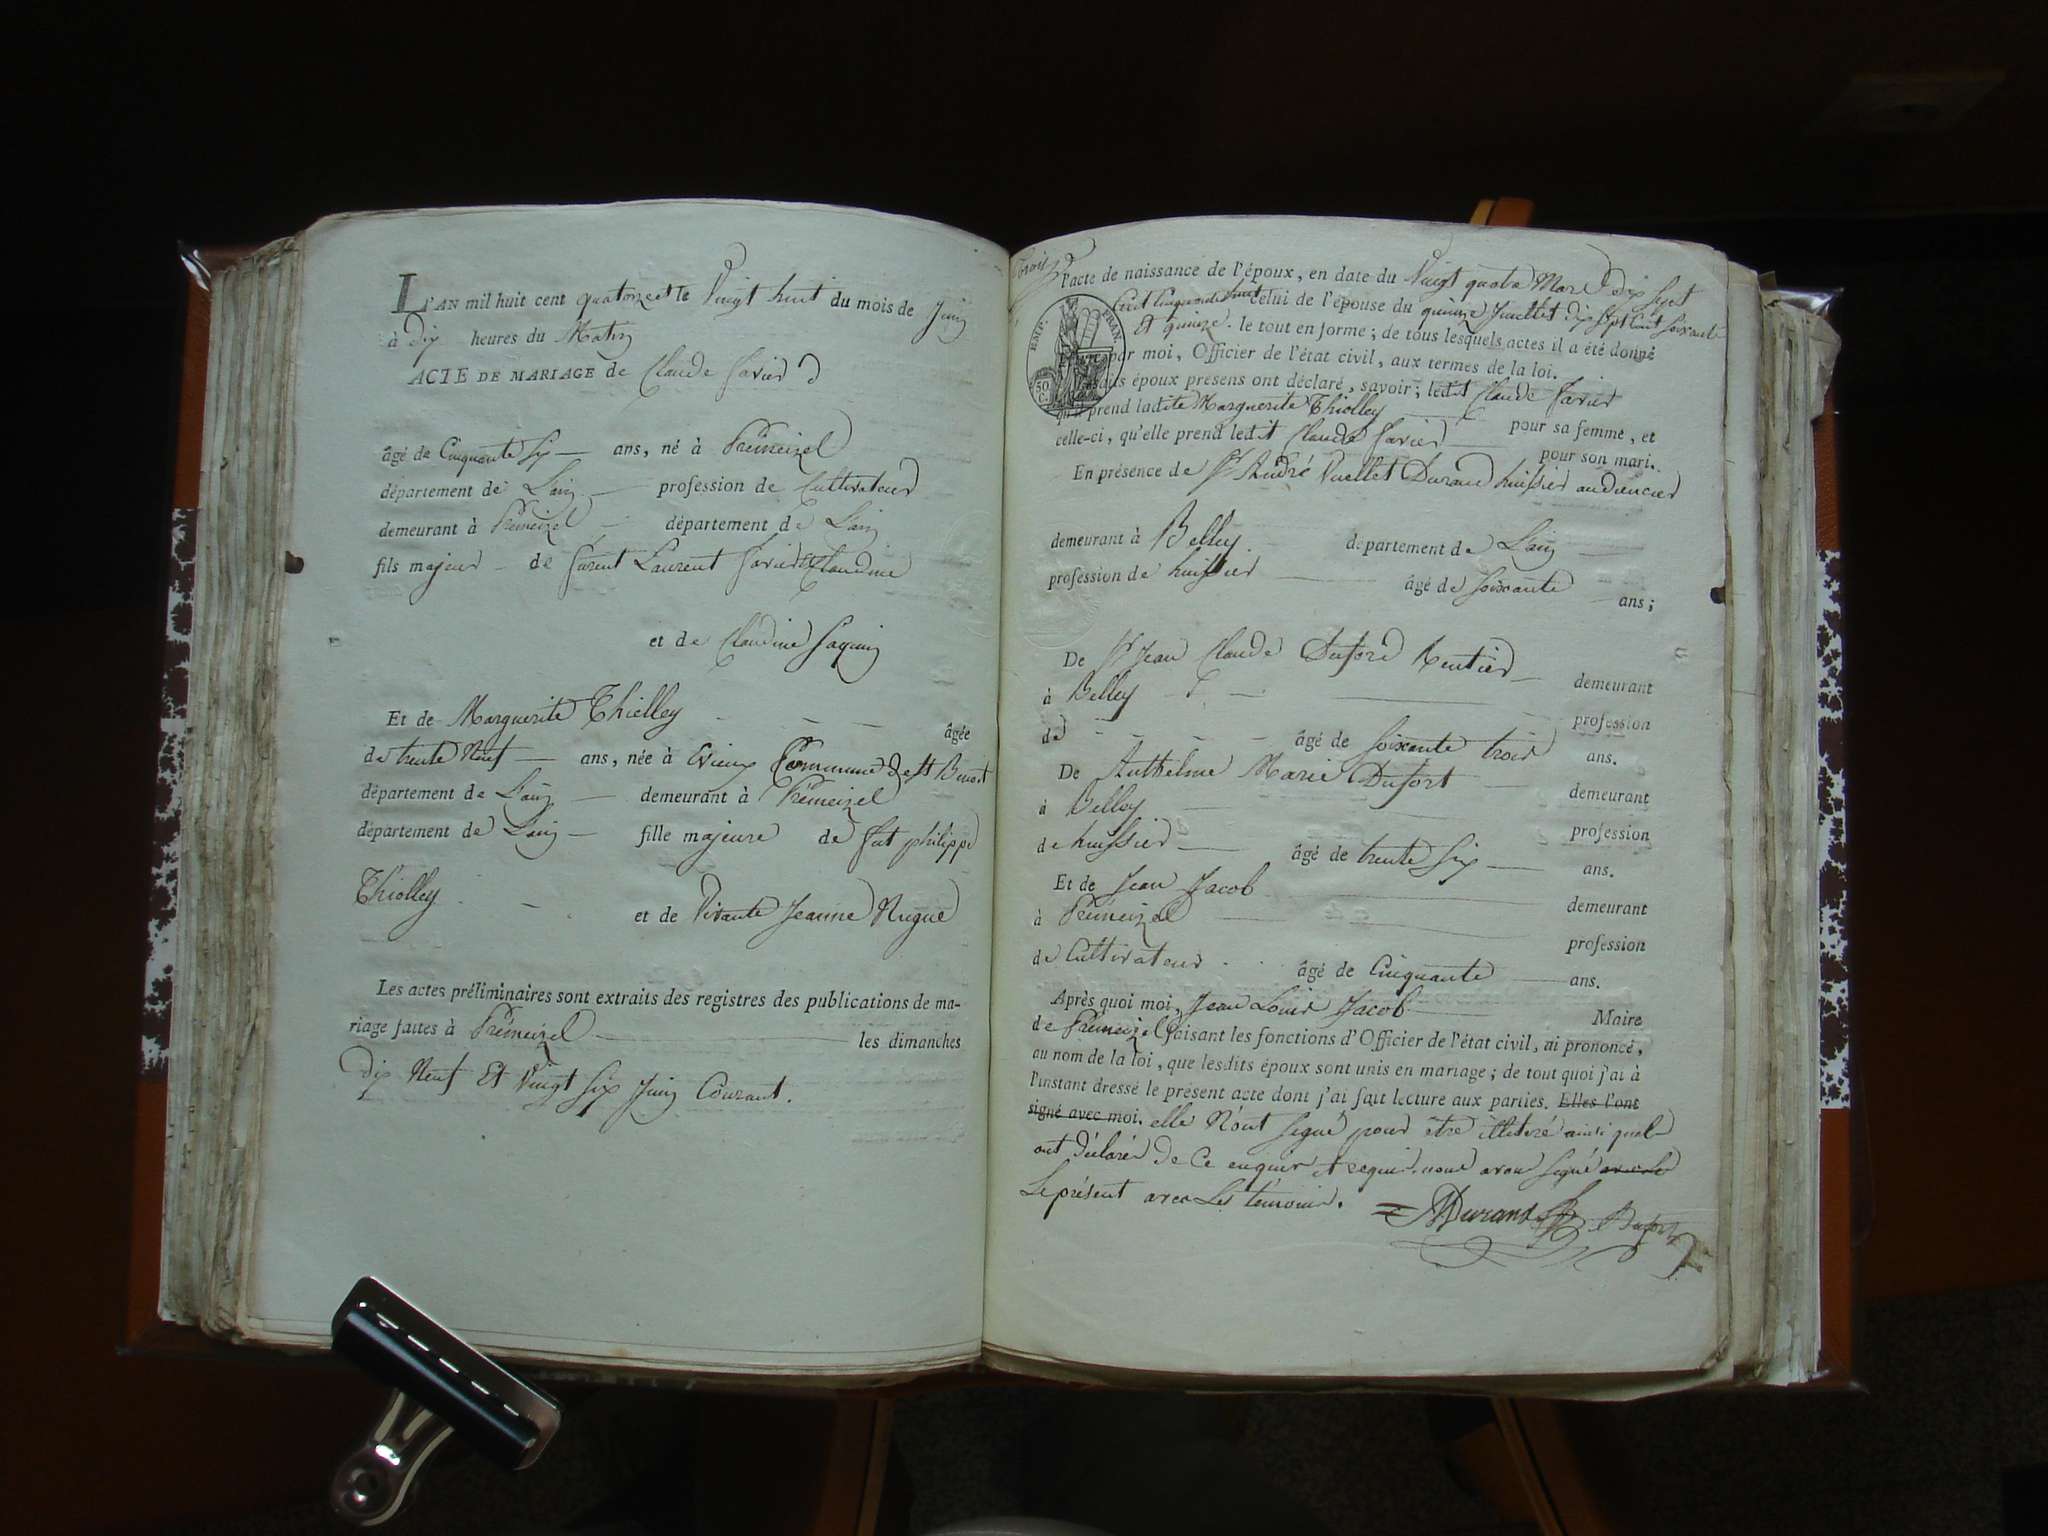 L'AN mil huit cent quatorze et le Vingt huit du mois de Juin
à Dix heures du Matin
ACTE DE MARIAGE de Claude Savier
âgé de Cinquante Six ans, né à Prémeizel
département de L'ain profession de Cultivateur
demeurant à Prémeizel département de L'ain
fils majeur de furent Laurent Savier et Claudine
et de Claudine
Et de Marguerite Thiolley âgée
de trente Neuf ans, née à Evieux Commune de St Benoit
département de L'ain demeurant à Prémeizel
département de L'ain fille majeure de fut philippe
Thiolley et de Vivante Jeanne Nugue
Les actes préliminaires sont extraits des registres des publications de ma-
riage faites à Prémeizel les dimanches
Dix Neuf Et Vingt Six Juin Courant.
trois
l'acte de naissance de l'époux, en date du Vingt quatre Mars Dix Sept
Cent Cinquante huit celui de l'épouse du quinze Juillet dix Sept Cent Soixante
et quinze. le tout en forme; de tous lesquels actes il a été donné
EMP. FRAN.
50 C.
par moi, Officier de l'état civil, aux termes de la loi.
époux présens ont déclaré, savoir; ledit Claude Savier
qu'il prend ladite Marguerite Thiolley pour sa femme, et
celle-ci, qu'elle prend ledit Claude Savier pour son mari.
En présence de Sr André Vuellet Durand huissier audiencier
demeurant à Belley département de L'ain
profession de huissier âgé de Soixante ans;
De Sr Jean Claude Dufort Rentier demeurant
à Belley profession
de âgé de Soixante trois ans.
De Anthelme Marie Dufort demeurant
à Belley profession
de huissier âgé de trente Six ans.
Et de Jean Jacob demeurant
à Prémeizel profession
de Cultivateur âgé de Cinquante ans.
Après quoi moi, Jean Louis Jacob Maire
de Prémeizel faisant les fonctions d'Officier de l'état civil, ai prononcé,
au nom de la loi, que lesdits époux sont unis en mariage; de tout quoi j'ai à
l'instant dressé le présent acte dont j'ai fait lecture aux parties. Elles l'ont
signé avec moi. elle N'ont Signé pour être illitéré ainsi quel
ont déclaré de Ce enquis et requis. nous avons Signé
Le présent avec Les témoins.
Durand Dufort